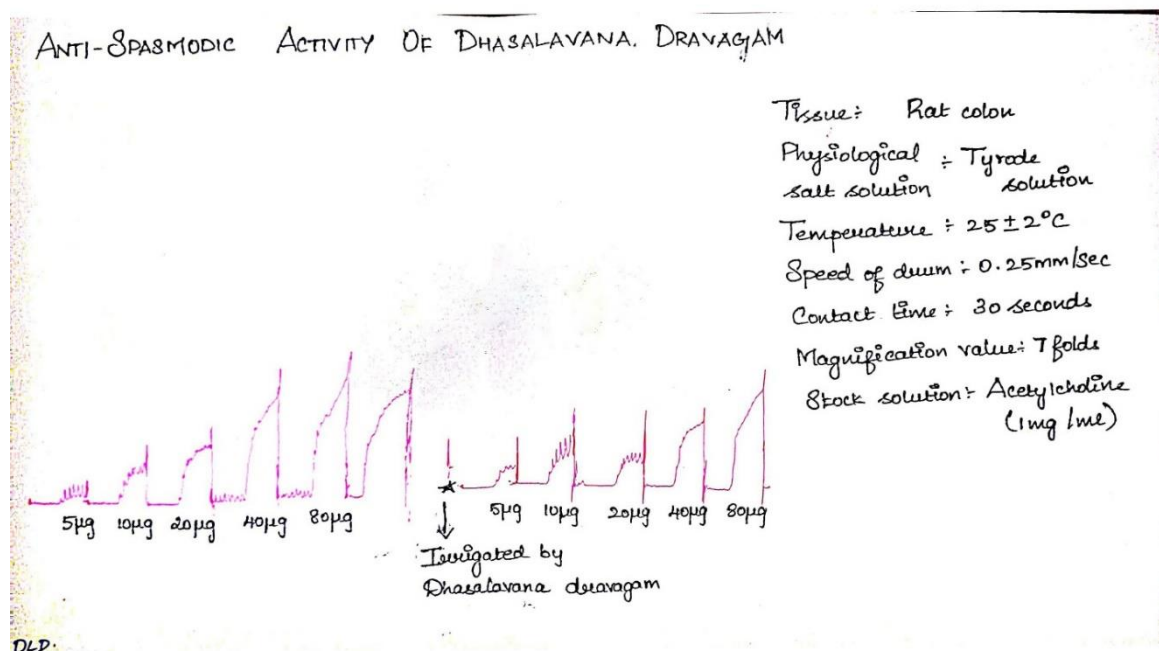 ANTI-SPASMODIC ACTIVITY OF DHASALAVANA. DRAVAGAM
Tissue:- Rat colon
Physiological salt solution :- Tyrode solution
Temperature :- 25±2°C
Speed of drum :- 0.25mm/sec
Contact time :- 30 seconds
Magnification value:- 7 folds
Stock solution:- Acetylcholine
(1mg/ml)
5µg 10µg 20µg 40µg 80µg 5µg 10µg 20µg 40µg 80µg
Irrigated by
Dhasalavana dravagam
DLD.